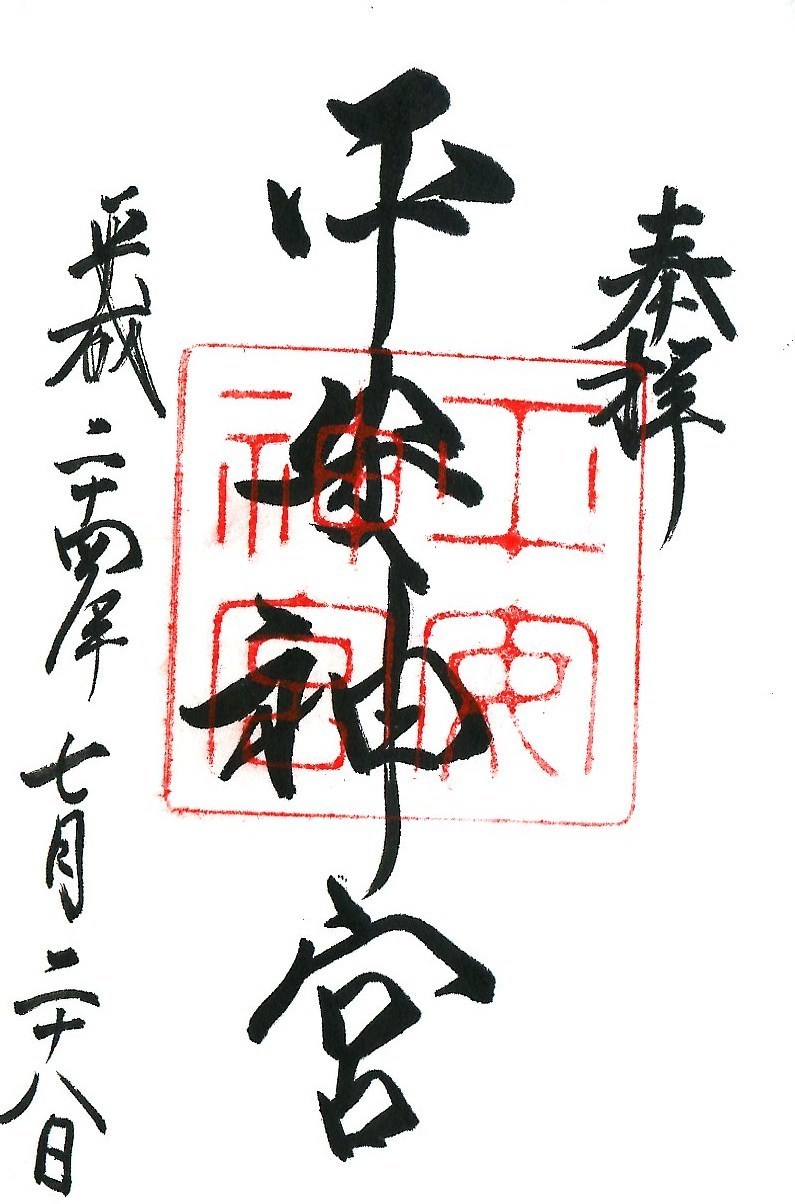 奉拝
平安神宮
平安神宮
平成二十四年七月二十八日